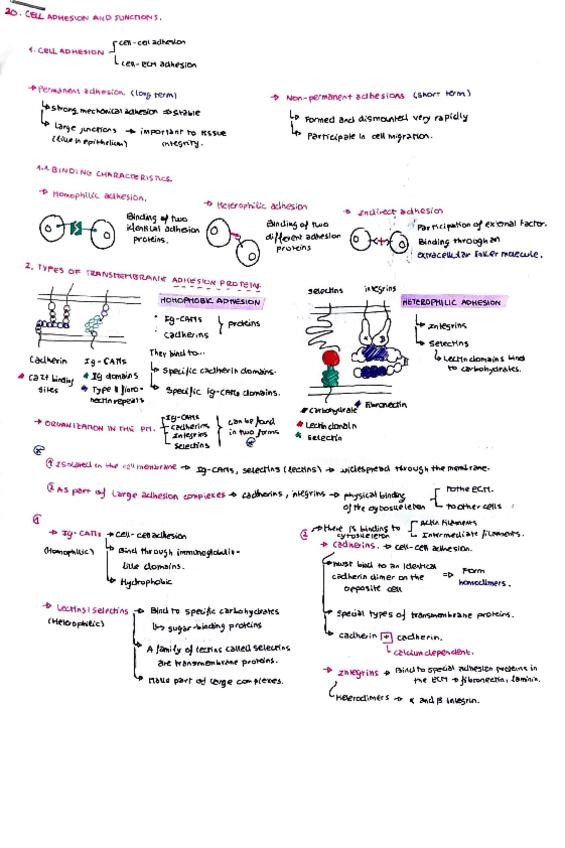 20. CELL ADHESION AND JUNCTIONS.
1. CELL ADHESION
cell-cell adhesion
cell-ECM adhesion
→ Permanent adhesion. (long term)
strong mechanical adhesion ⇒ stable
large junctions → important to tissue
(like in epithelium) integrity.
→ Non-permanent adhesions (short term)
Formed and dismounted very rapidly
Participate in cell migration.
1.1 BINDING CHARACTERISTICS.
→ Homophilic adhesion.
Binding of two
identical adhesion
proteins.
→ Heterophilic adhesion
Binding of two
different adhesion
proteins
→ Indirect adhesion
Participation of external factor.
Binding through an
extracellular linker molecule.
2. TYPES OF TRANSMEMBRANE ADHESION PROTEIN.
Cadherin
Ca2+ binding
sites
Ig-CAMs
Ig domains
Type III fibro-
nectin repeats
HOMOPHOBIC ADHESION
Ig-CAMs
cadherins
proteins
They bind to...
Specific cadherin domains.
Specific ig-CAMs domains.
selectins
integrins
α β
Carbohydrate
Fibronectin
Lectin domain
Selectin
HETEROPHILIC ADHESION
→ Integrins
→ Selectins
Lectin domains bind
to carbohydrates.
→ ORGANIZATION IN THE PM.
Ig-CAMs
cadherins
Integrins
Selectins
can be found
in two forms
① Isolated in the cell membrane → Ig-CAMs, selectins (lectins) → widespread through the membrane.
② As part of large adhesion complexes → cadherins, integrins → physical binding
of the cytoskeleton
to the ECM.
to other cells
①
→ Ig-CAMs
(Homophilic)
→ Cell-cell adhesion
Bind through immunoglobulin-
like domains.
Hydrophobic
→ Lectins/selectins
(Heterophilic)
Bind to specific carbohydrates
↳ sugar-binding proteins
A family of lectins called selectins
are transmembrane proteins.
Make part of large complexes.
②
→ there is binding to
cytoskeleton
Actin filaments
Intermediate filaments.
→ cadherins. → cell-cell adhesion.
Must bind to an identical
cadherin dimer on the
opposite cell
⇒ Form
homodimers.
Special types of transmembrane proteins.
cadherin + cadherin.
calcium dependent.
→ Integrins → Bind to special adhesion proteins in
the ECM → fibronectin, laminin.
Heterodimers → α and β integrin.